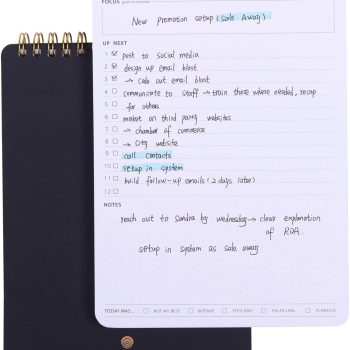 FOCUS
New promotion setup (Sale Away)
UP NEXT
1 post to social media
2 design up email blast
3 → Code out email blast
4 communicate to staff → train those where needed, recap
5 for others
6 market on third party websites
7 → chamber of commerce
8 → City website
9 call contacts
10 setup in system
11 build follow-up emails (2 days later)
12
NOTES
reach out to Sandra by wednesday → clear explanation
of RDA.
setup in system as sale away
TODAY WAS... NOT MY BEST INTENSE EFFICIENT FULFILLING FLAWLESS